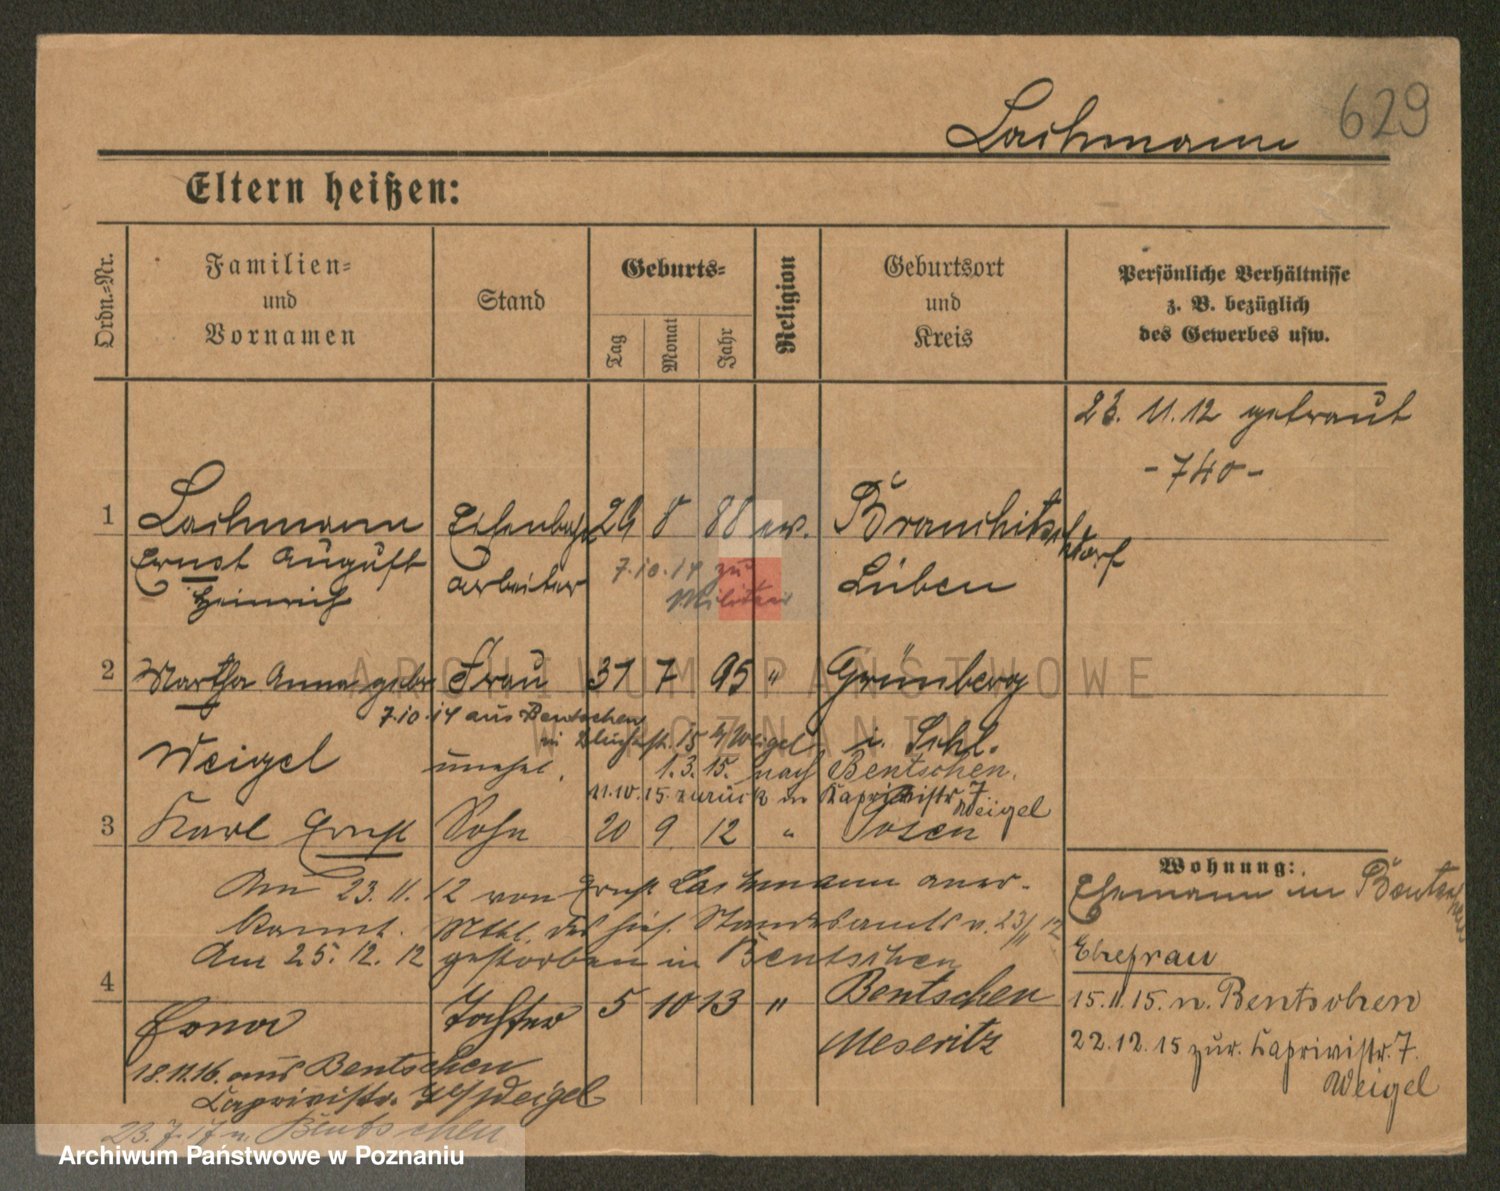 Lachmann 629
Eltern heißen:
Ordn.-Nr.
Familien-
und
Vornamen
Stand
Geburts-
Tag
Monat
Jahr
Religion
Geburtsort
und
Kreis
Persönliche Verhältnisse
z. B. bezüglich
des Gewerbes usw.
23. 11. 12 getraut
- 740 -
1 Lachmann Eisenbahn 29 8 88 ev. Brauchitschdorf
Ernst August arbeiter Lüben
Heinrich
7.10.14 zum
Militär
2 Martha Anna geb. Frau 31 7 95 " Grünberg
7.10.14 aus Bentschen
15 b/Weigel i. Schl.
Weigel unehel. 1.3.15. nach Bentschen.
11.10.15. zurück Kaprivistr. 7
Weigel
3 Karl Ernst Sohn 20 9 12 " Posen
Am 23. 11. 12 von Ernst Lachmann aner-
kannt. Mttl. des hies. Standesamts v. 23/11 12
Am 25. 12. 12 gestorben in Bentschen
4 Erna Tochter 5 10 13 " Bentschen
Meseritz
18.11.16. aus Bentschen
Caprivistr. 7 b/Weigel
23. 7. 17 n. Bentschen
Wohnung:
Ehemann in Bentschen
Ehefrau
15.11.15. n. Bentschen
22.12.15 zur. Kaprivistr. 7.
Weigel
ARCHIWUM PAŃSTWOWE
W POZNANIU
Archiwum Państwowe w Poznaniu